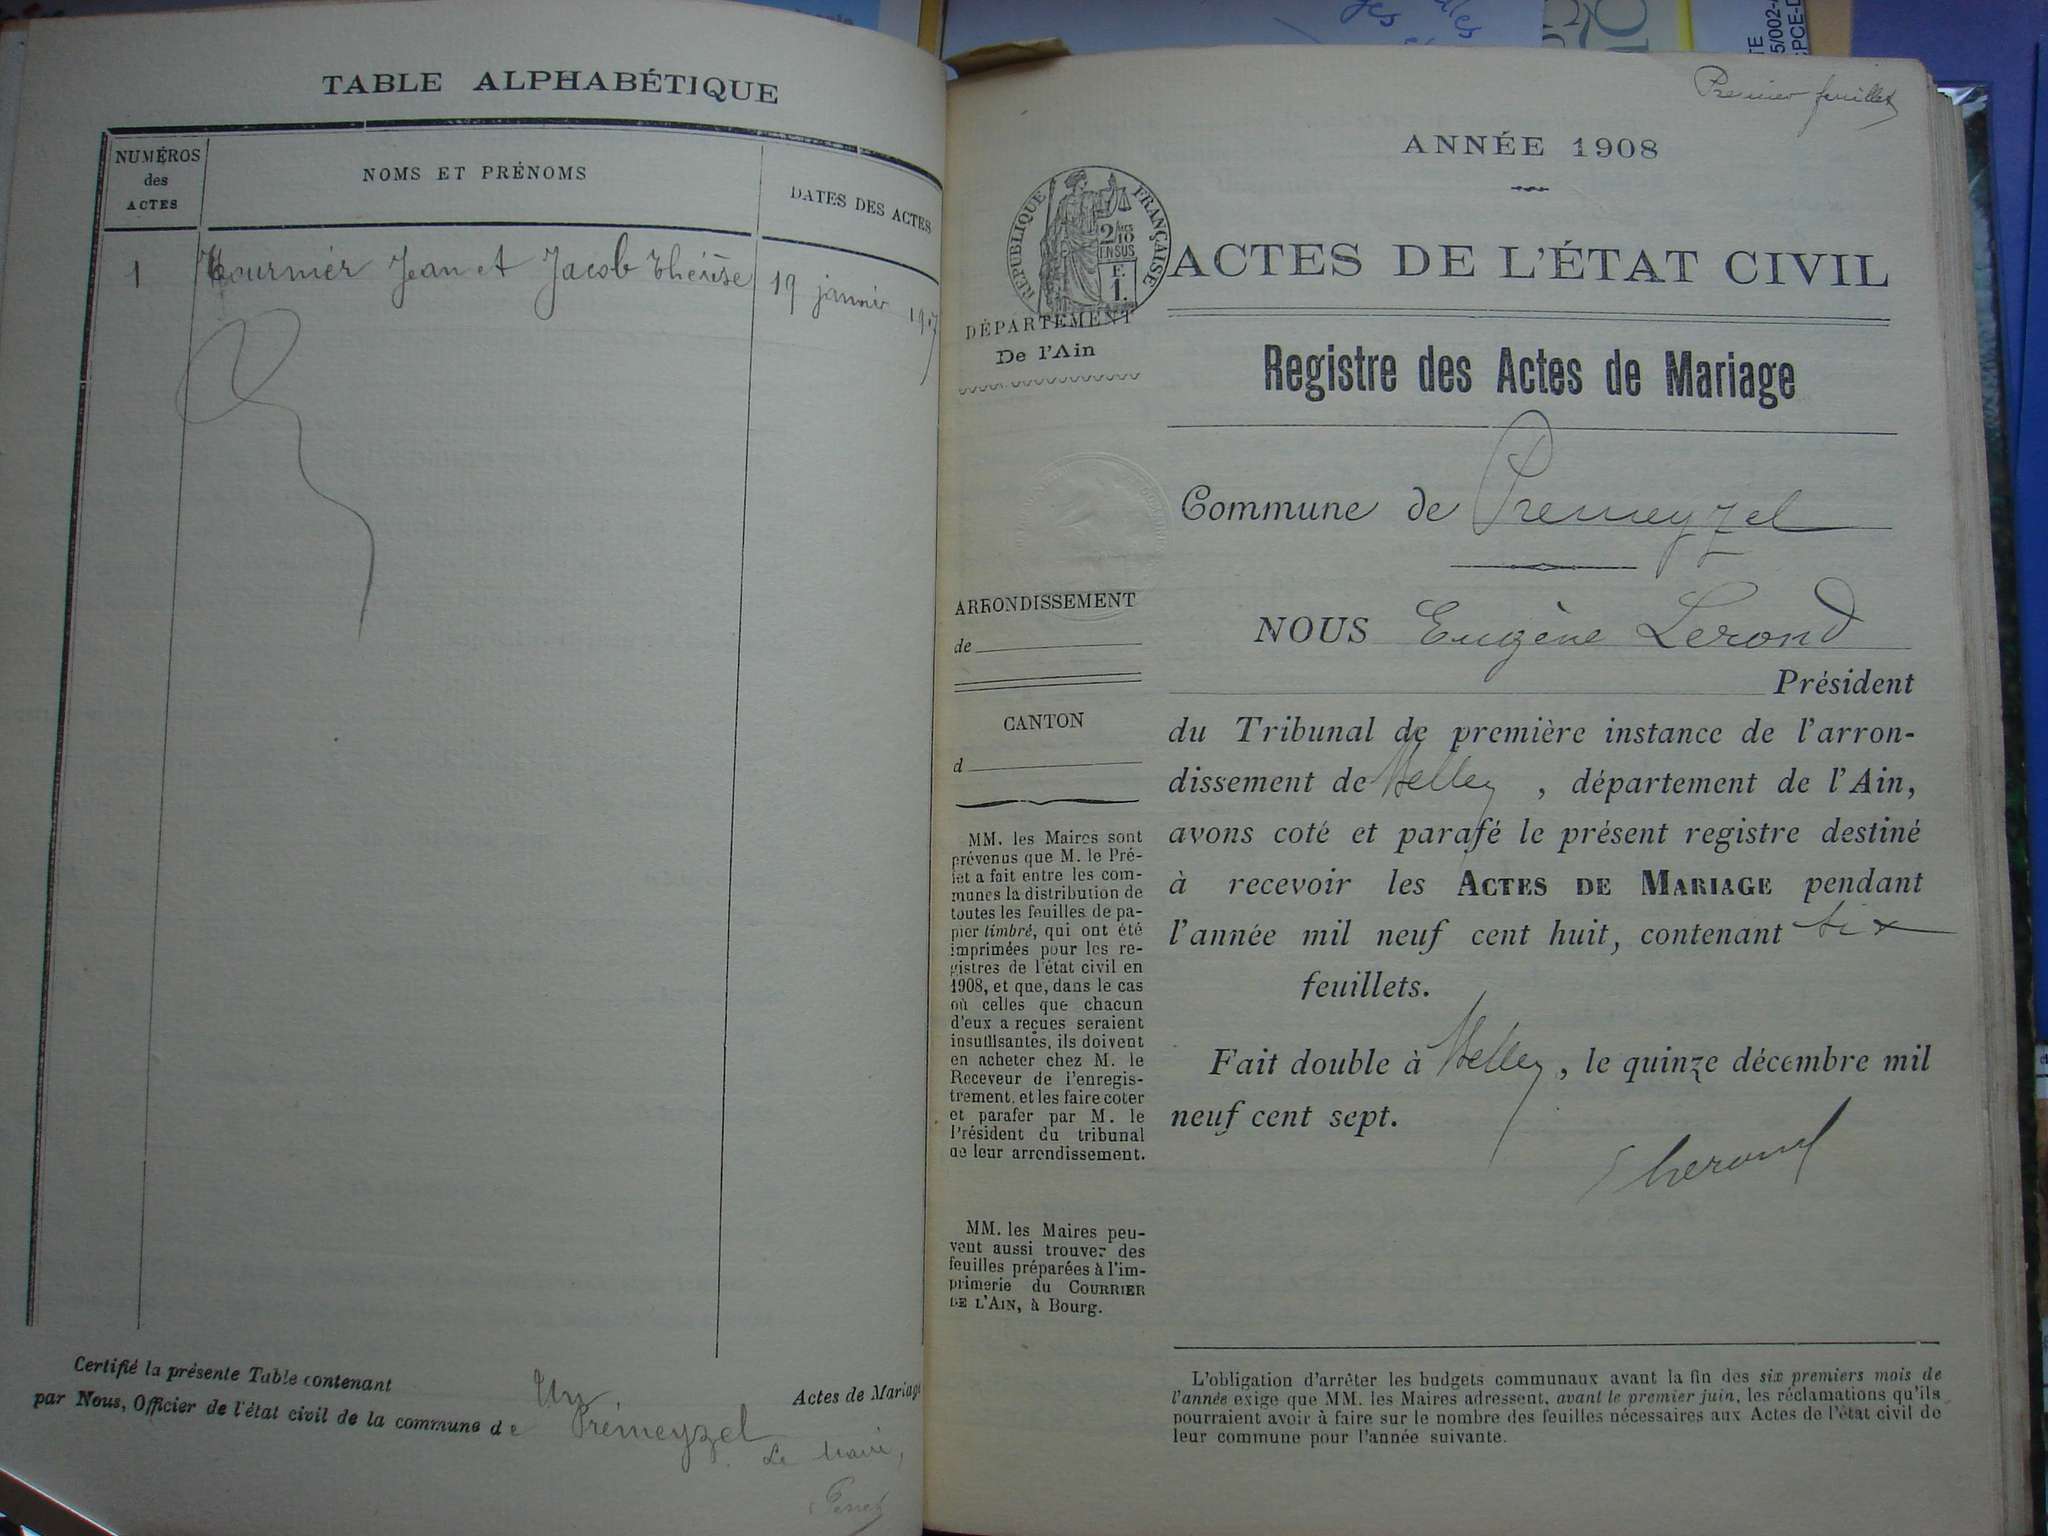 TABLE ALPHABÉTIQUE
NUMÉROS
des
ACTES
NOMS ET PRÉNOMS
DATES DES ACTES
1 Tournier Jean et Jacob Thérèse 19 janvier 1907
Certifié la présente Table contenant Un Actes de Mariage
par Nous, Officier de l'état civil de la commune de Prémeyzel
Le Maire,
Premier feuillet
ANNÉE 1908
RÉPUBLIQUE FRANÇAISE
2/10
EN SUS
F.
1.
ACTES DE L'ÉTAT CIVIL
DÉPARTEMENT
De l'Ain
Registre des Actes de Mariage
Commune de Premeyzel
ARRONDISSEMENT
de
CANTON
d
MM. les Maires sont
prévenus que M. le Pré-
fet a fait entre les com-
munes la distribution de
toutes les feuilles de pa-
pier timbré, qui ont été
imprimées pour les re-
gistres de l'état civil en
1908, et que, dans le cas
où celles que chacun
d'eux a reçues seraient
insuffisantes, ils doivent
en acheter chez M. le
Receveur de l'enregis-
trement, et les faire coter
et parafer par M. le
Président du tribunal
de leur arrondissement.
MM. les Maires peu-
vent aussi trouver des
feuilles préparées à l'im-
primerie du COURRIER
DE L'AIN, à Bourg.
NOUS Eugène Lerond
Président
du Tribunal de première instance de l'arron-
dissement de Belley, département de l'Ain,
avons coté et parafé le présent registre destiné
à recevoir les ACTES DE MARIAGE pendant
l'année mil neuf cent huit, contenant six
feuillets.
Fait double à Belley, le quinze décembre mil
neuf cent sept.
L'obligation d'arrêter les budgets communaux avant la fin des six premiers mois de
l'année exige que MM. les Maires adressent, avant le premier juin, les réclamations qu'ils
pourraient avoir à faire sur le nombre des feuilles nécessaires aux Actes de l'état civil de
leur commune pour l'année suivante.